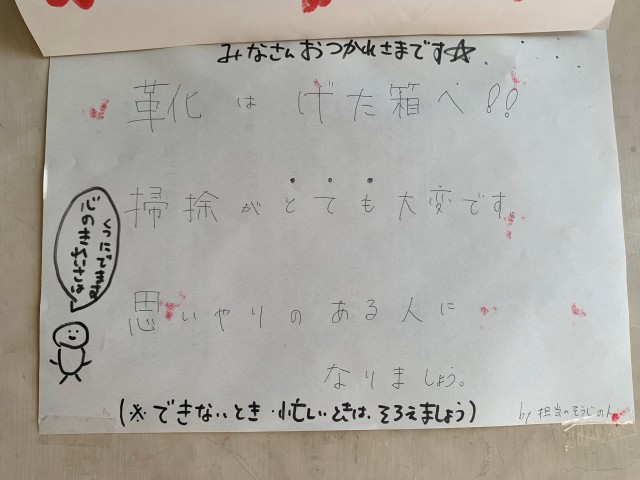 みなさんおつかれさまです☆
靴はげた箱へ!!
掃除がとても大変です
思いやりのある人に
なりましょう。
心のきれいさは
くつにでます
(※できないとき・忙しいときは、そろえましょう)
by 担当 そうじの